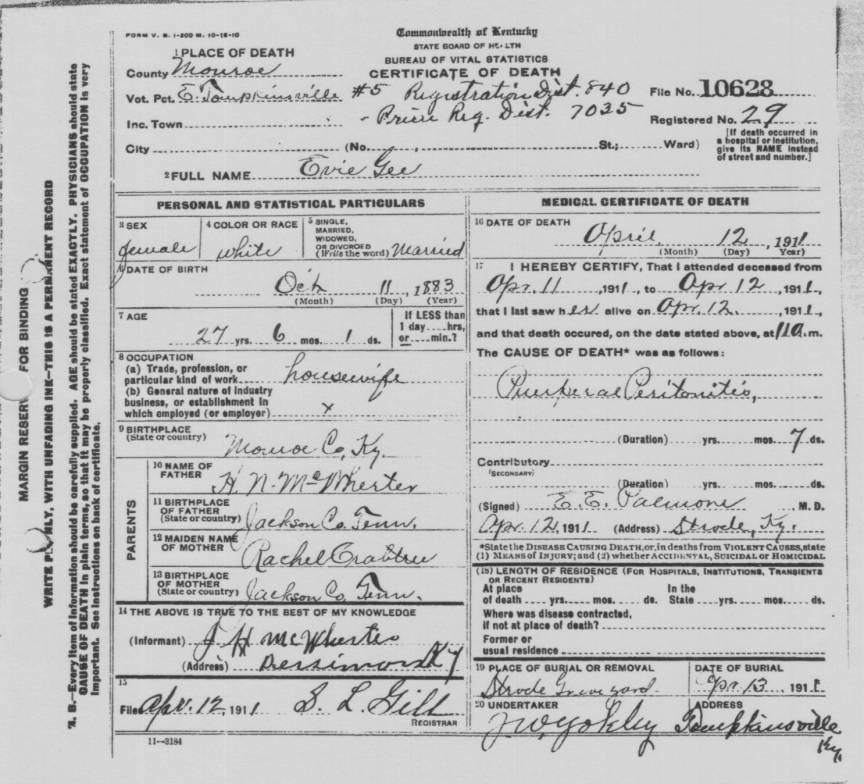 FORM V. S. 1-200 M. 10-16-10
Commonwealth of Kentucky
STATE BOARD OF HEALTH
BUREAU OF VITAL STATISTICS
CERTIFICATE OF DEATH
1 PLACE OF DEATH
County Monroe
Vot. Pct. E. Tompkinsville #5 Registration Dist. 840 File No. 10628
Inc. Town - Prim Reg. Dist. 7035 Registered No. 29
City (No. St.; Ward) [If death occurred in a hospital or institution, give its NAME instead of street and number.]
2 FULL NAME Evie Gee
PERSONAL AND STATISTICAL PARTICULARS
3 SEX female
4 COLOR OR RACE white
5 SINGLE, MARRIED, WIDOWED, OR DIVORCED (Write the word) Married
6 DATE OF BIRTH
Oct 11, 1883
(Month) (Day) (Year)
7 AGE
27 yrs. 6 mos. 1 ds.
If LESS than 1 day....hrs, or....min.?
8 OCCUPATION
(a) Trade, profession, or
particular kind of work housewife
(b) General nature of industry
business, or establishment in
which employed (or employer) x
9 BIRTHPLACE
(State or country) Monroe Co, Ky.
PARENTS
10 NAME OF FATHER H. N. McWherter
11 BIRTHPLACE OF FATHER
(State or country) Jackson Co, Tenn.
12 MAIDEN NAME OF MOTHER Rachel Crabtree
13 BIRTHPLACE OF MOTHER
(State or country) Jackson Co, Tenn.
14 THE ABOVE IS TRUE TO THE BEST OF MY KNOWLEDGE
(Informant) J H McWherter
(Address) Ky
15
Filed Apr. 12, 1911 S. L. Gill
REGISTRAR
11--3184
MEDICAL CERTIFICATE OF DEATH
16 DATE OF DEATH
April 12, 1911
(Month) (Day) Year)
17 I HEREBY CERTIFY, That I attended deceased from
Apr. 11, 1911, to Apr 12, 1911,
that I last saw her alive on Apr. 12, 1911,
and that death occured, on the date stated above, at 11 a.m.
The CAUSE OF DEATH* was as follows:
Puerperal Peritonitis,
(Duration) yrs. mos. 7 ds.
Contributory
(SECONDARY)
(Duration) yrs. mos. ds.
(Signed) E. E. Palmore, M. D.
Apr. 12, 1911 (Address) Strode, Ky.
*State the DISEASE CAUSING DEATH, or, in deaths from VIOLENT CAUSES, state
(1) MEANS OF INJURY; and (2) whether ACCIDENTAL, SUICIDAL OR HOMICIDAL
(18) LENGTH OF RESIDENCE (FOR HOSPITALS, INSTITUTIONS, TRANSIENTS
OR RECENT RESIDENTS)
At place of death yrs. mos. ds. In the State yrs. mos. ds.
Where was disease contracted,
if not at place of death?
Former or
usual residence
19 PLACE OF BURIAL OR REMOVAL
Strode Graveyard
DATE OF BURIAL
Apr. 13, 1911
20 UNDERTAKER
J W Yokley
ADDRESS
Tompkinsville Ky.
MARGIN RESERVED FOR BINDING
WRITE PLAINLY, WITH UNFADING INK-THIS IS A PERMANENT RECORD
N. B.-Every item of information should be carefully supplied. AGE should be stated EXACTLY. PHYSICIANS should state
CAUSE OF DEATH in plain terms, so that it may be properly classified. Exact statement of OCCUPATION is very
important. See instructions on back of certificate.